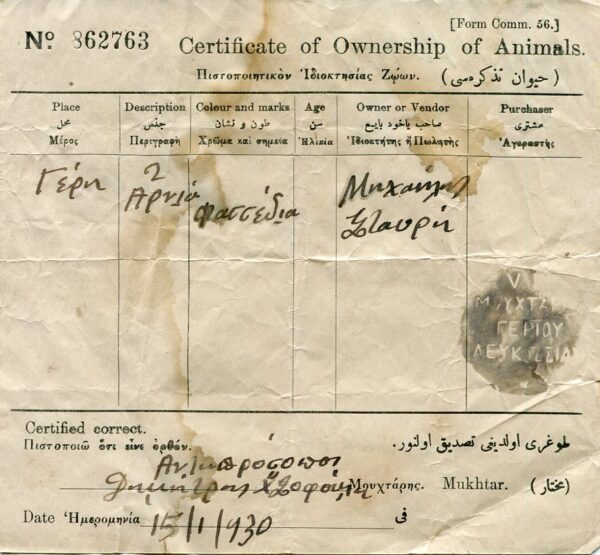 [Form Comm. 56.]
Nº 862763 Certificate of Ownership of Animals.
Πιστοποιητικὸν Ἰδιοκτησίας Ζῴων. (حيوان تذكرەسى)
Place Description Colour and marks Age Owner or Vendor Purchaser
محل جنس طون و نشان سن صاحب ياخود بايع مشترى
Μέρος Περιγραφὴ Χρῶμα καὶ σημεῖα Ἡλικία Ἰδιοκτήτης ἢ Πωλητὴς Ἀγοραστὴς
Γέρι 2 Μιχαήλ
Αρνιά Φασσέδια Σταυρή
ΜΟΥΧΤΑ
ΓΕΡΙΟΥ
ΛΕΥΚΩΣΙΑ
Certified correct.
Πιστοποιῶ ὅτι εἶνε ὀρθόν. طوغرى اولديغنى تصديق اولنور.
Αντιπρόσοποι
Μουχτάρης. Mukhtar. (مختار)
Date Ἡμερομηνία 15/1/930 فى